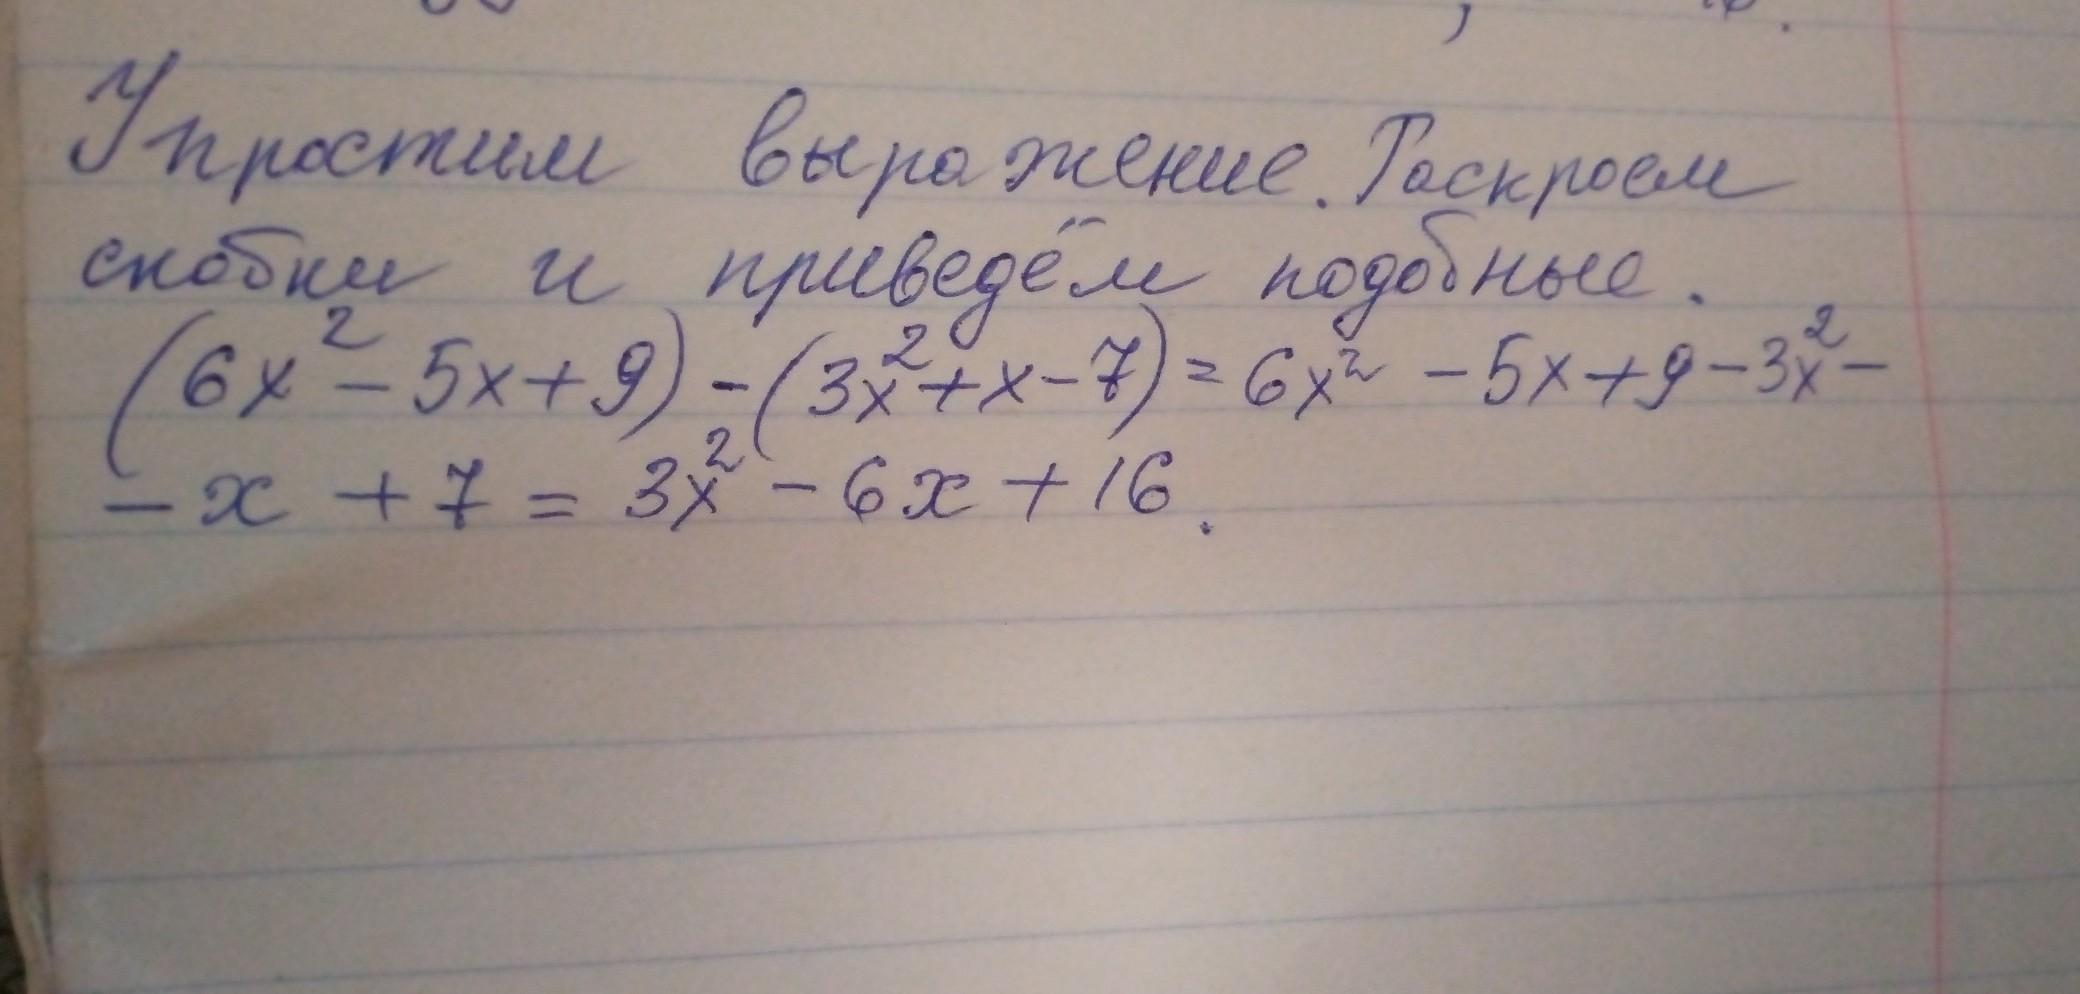 Упростим выражение. Раскроем
скобки и приведём подобные.
(6x² - 5x + 9) - (3x² + x - 7) = 6x² - 5x + 9 - 3x² -
- x + 7 = 3x² - 6x + 16.